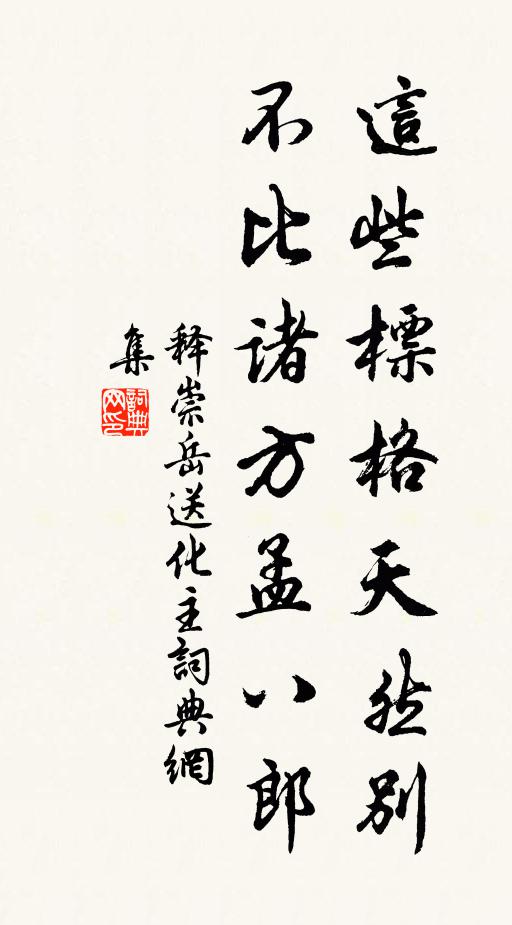 這些標格天然別
不比諸方孟八郎
释崇岳送化主詞典網
集
詞典网印